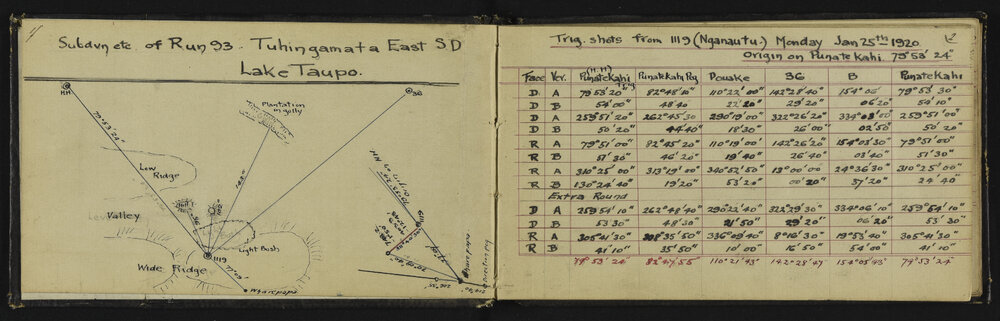 Subdvn etc. of Run 93. Tuhingamata East SD
Lake Taupo.
HH
36
Plantation
in gully
79°53'24"
Low
Ridge
Valley
Light Bush
1119
Wide Ridge
Wharepapa
2
Trig. shots from 1119 (Nganautu.) Monday Jan 25th 1920.
Origin on Punatekahi. 79° 53' 24"
Face Ver. Punatekahi (H.H) Punatekahi Peg Pouake 36 B Punatekahi
D A 79 53'20" 82°48'10" 110°22'00" 142°28'40" 154°06' 79°53'30"
D B 54'00" 48'40 22'20" 29'20" 06'20 54'10"
D A 259°51'20" 262°45'30 290°19'00" 322°26'20" 334°03'00" 259°51'00"
D B 50'20" 44'40" 18'30" 26'00" 02'50" 50'20
R A 79°51'00" 82°45'20" 110°19'00' 142°26'20 154°03'30" 79°51'00"
R B 51'30" 46'20 19'40" 26'40 03'40" 51'30"
R A 310°25'00" 313°19'00" 340°52'50" 13°00'00" 24°36'30 310°25'00"
R B 130°24'40" 19'20" 53'20" 00'20" 37'20" 24'40"
Extra Round
D A 259°54'10" 262°48'40" 290°22'40" 322°29'30" 334°06'10" 259°54'10"
D B 53'30 48'30" 21'50" 29'20" 06'20" 53'30"
R A 305°41'30" 308°35'50" 336°09'40" 8°16'30" 19°53'40" 305°41'30"
R B 41'10" 35'50" 10'00" 16'50" 54'00" 41'10"
79°53'24" 82°47'55 110°21'43" 142°28'47 154°05'43" 79°53'24"